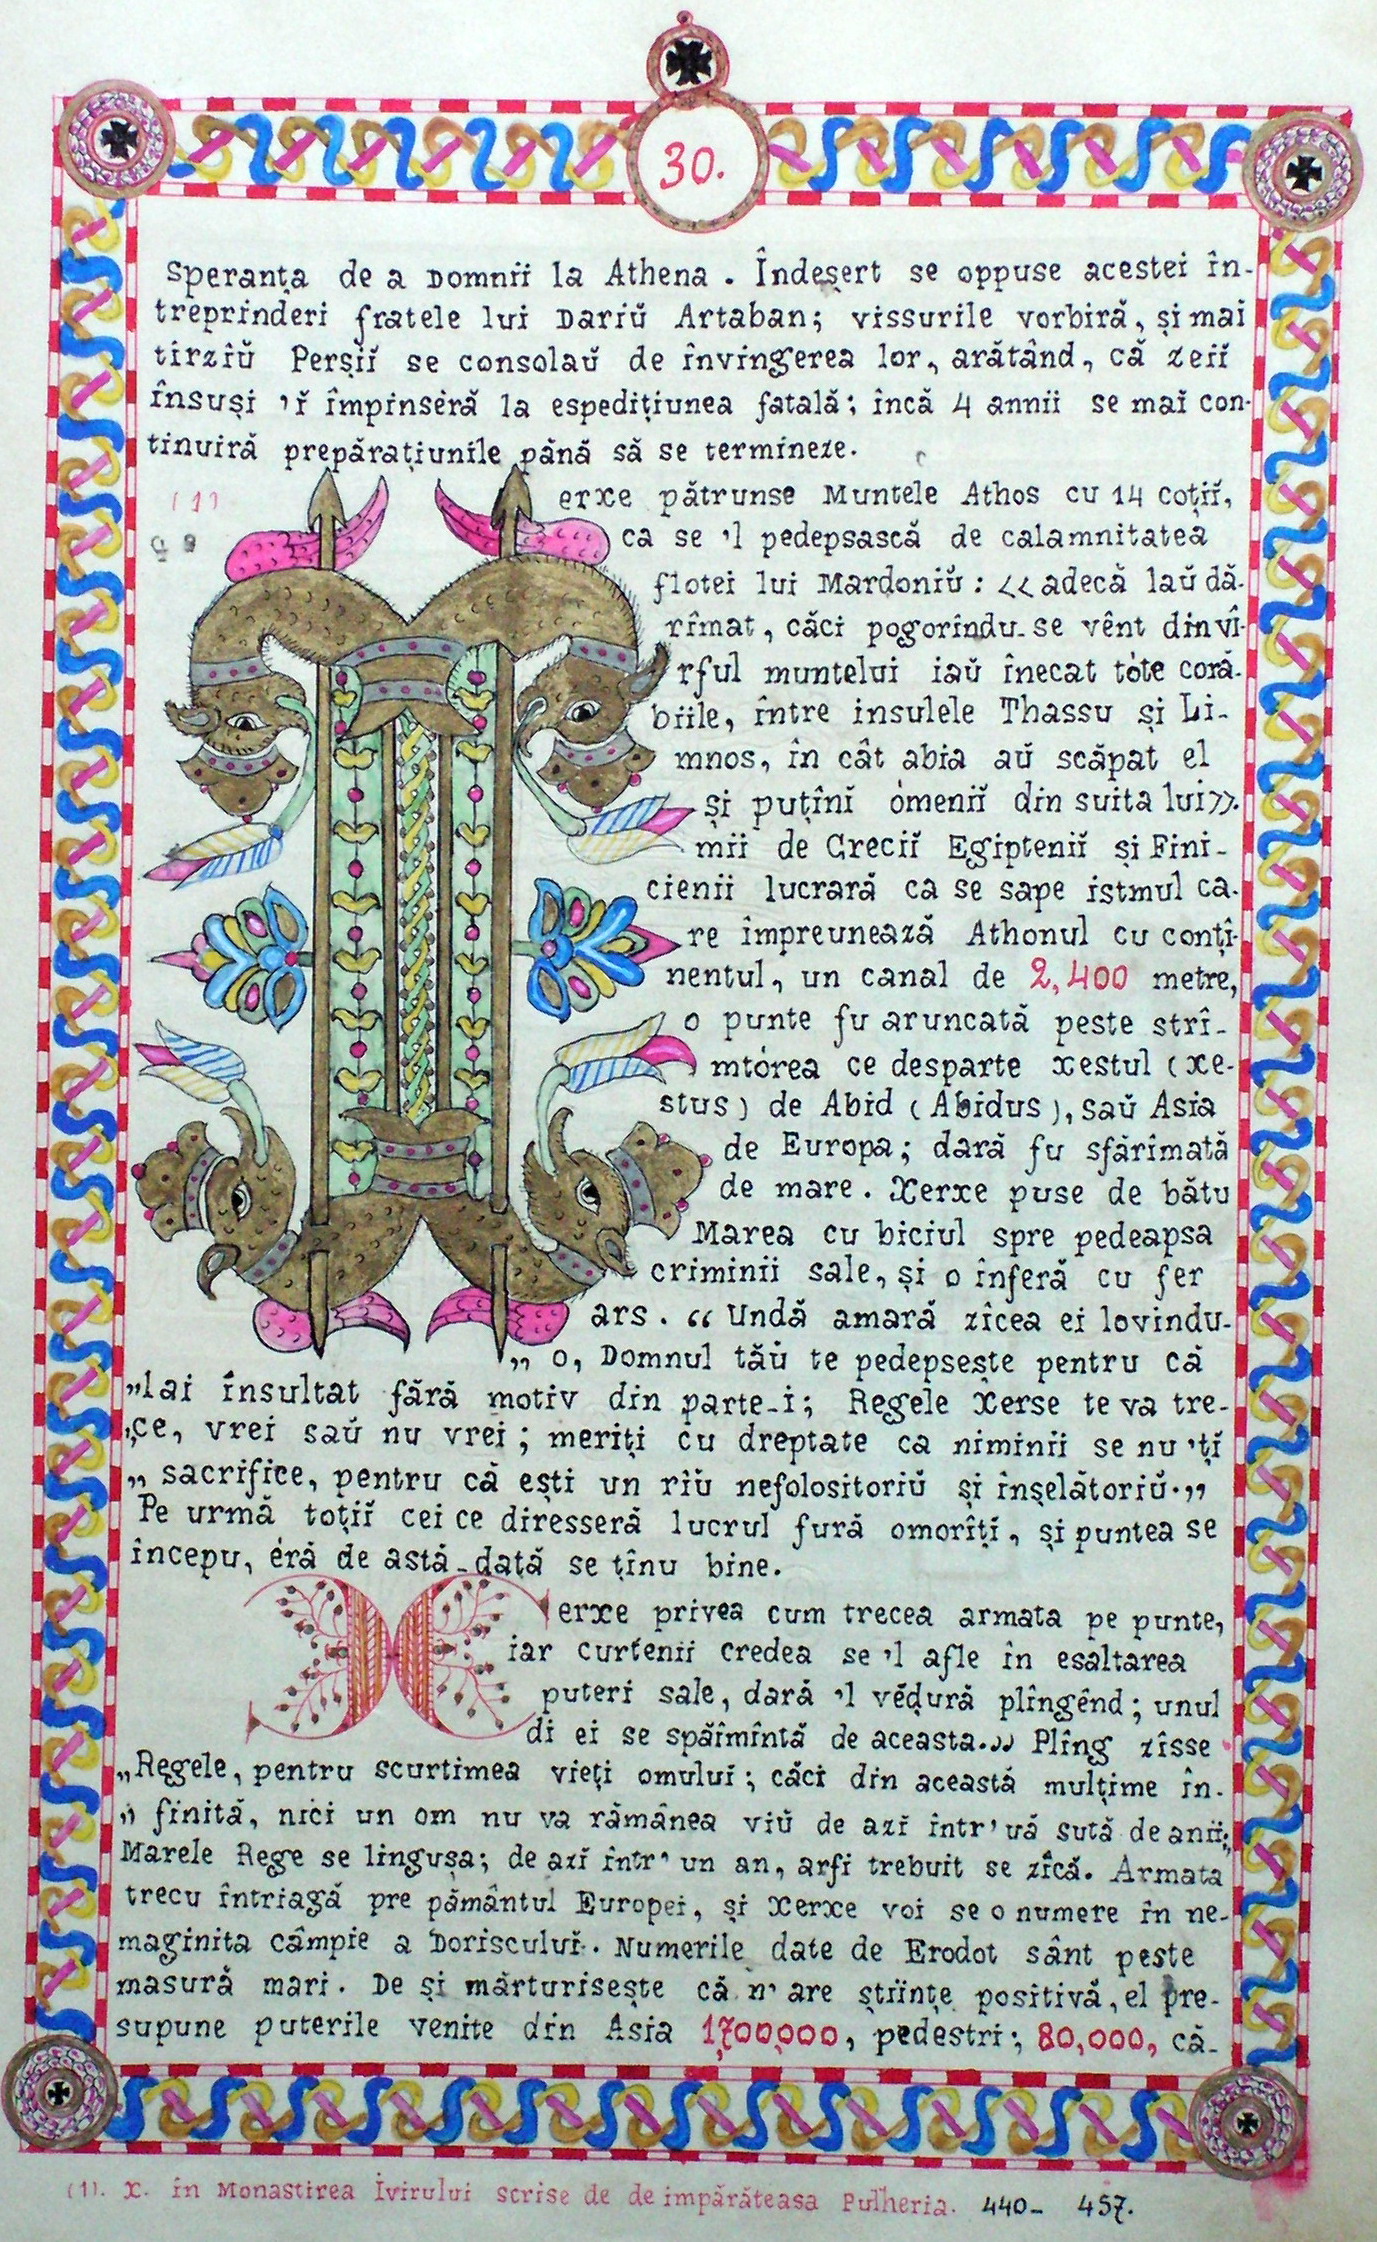 30.
Speranța de a Domnii la Athena. Îndeșert se oppuse acestei în-
treprinderi fratele lui Dariŭ Artaban; vissurile vorbiră, și mai
tirziŭ Perșiĭ se consolaŭ de învingerea lor, arătând, că zeiĭ
însuși 'ĭ împinseră la espedițiunea fatală; încă 4 annii se maĭ con-
tinuiră prepărațiunile până să se termineze.
(1)
erxe pătrunse Muntele Athos cu 14 coțiĭ,
ca se 'l pedepsască de calamnitatea
flotei lui Mardoniŭ: << adecă laŭ dă-
rîmat, căci pogorîndu-se vênt din vî-
rful muntelui iaŭ înecat tóte coră-
biile, între insulele Thassu și Li-
mnos, în cât abia aŭ scăpat el
și puținĭ ómeniĭ din suita lui>>.
mii de Greciĭ Egipteniĭ și Fini-
cienii lucrară ca se sape istmul ca-
re împreunează Athonul cu conți-
nentul, un canal de 2,400 metre,
o punte fu aruncată peste strî-
mtórea ce desparte xestul (xe-
stus) de Abid (Abidus), saŭ Asia
de Europa; dară fu sfărîmată
de mare. Xerxe puse de bătu
Marea cu biciul spre pedeapsa
criminii sale, și o înferă cu fer
ars. “Undă amară zîcea ei lovindu-
„ o, Domnul tăŭ te pedepsește pentru că
„lai însultat fără motiv din parte-i; Regele Xerse te va tre-
„ce, vrei saŭ nu vrei; meriți cu dreptate ca niminii se nu 'țĭ
„ sacrifice, pentru că ești un rîŭ nefolositoriŭ și înșelătoriŭ.”
Pe urmă toțiĭ cei ce diresseră lucrul fură omorîțĭ, și puntea se
începu, éră de astă-dată se ținu bine.
erxe privea cum trecea armata pe punte,
iar curtenii credea se 'l afle în esaltarea
puteri sale, dară 'l vĕḑură plîngênd; unul
di ei se spăimîntă de aceasta.„ Plîng zîsse
„Regele, pentru scurtimea vieți omului; căci din această mulțime în-
„ finită, nici un om nu va rămânea viŭ de azĭ într'uă sută de anii;„
Marele Rege se lingușa; de azĭ într'un an, arfi trebuit se zîcă. Armata
trecu întriagă pre pământul Europei, și Xerxe voi se o numere în ne-
maginita câmpie a Dorisculuĭ. Numerile date de Erodot sânt peste
masură mari. De și mărturisește că n'are științe positivă, el pre-
supune puterile venite din Asia 1,700,000, pedestri; 80,000, că-
(1). X. în Monastirea Ivirului scrise de de impărăteasa Pulheria. 440- 457.